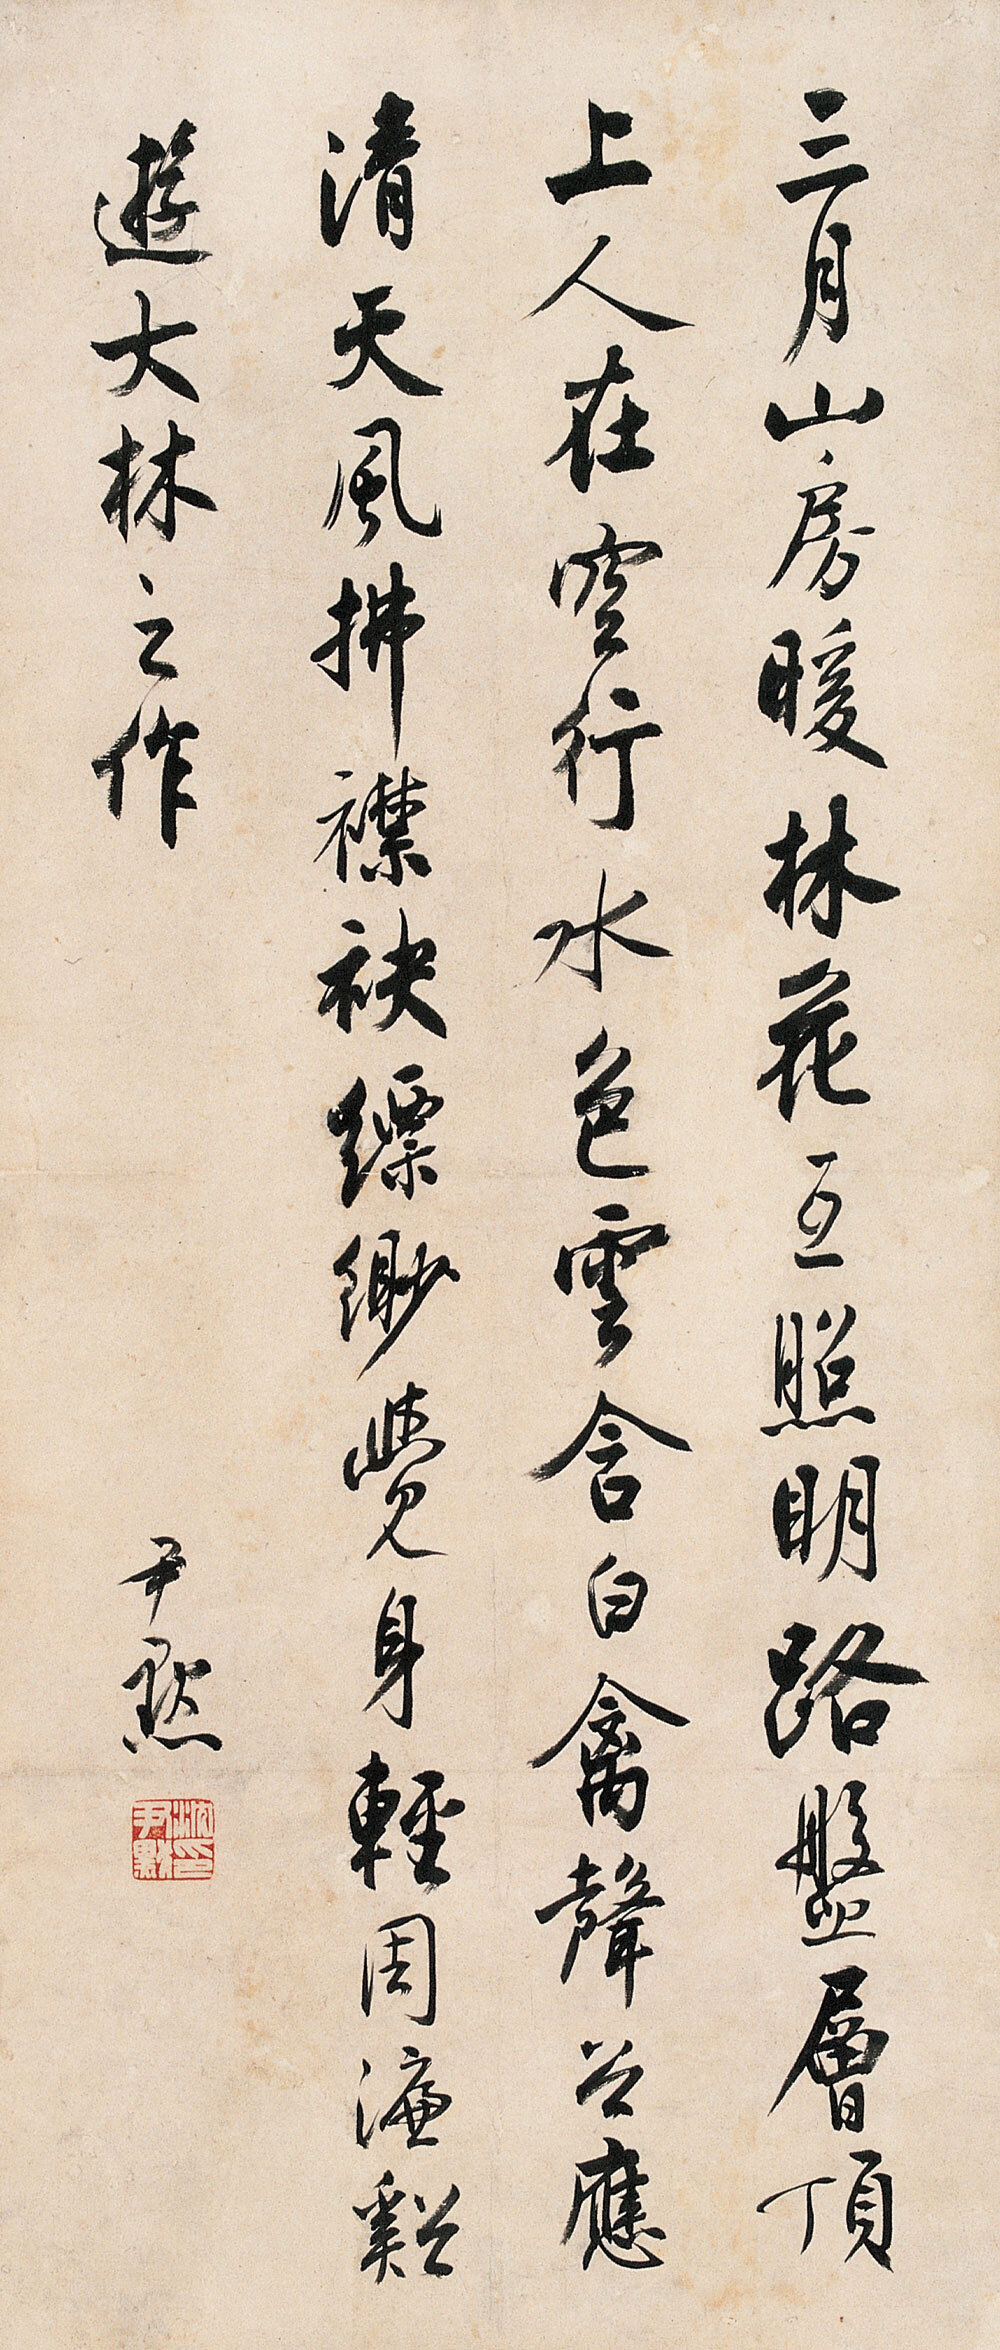 三月山房暖林花互照明路盤層頂
上人在空行水色雲含白禽聲谷應
清天風拂襟袂縹緲覺身輕周濂谿
遊大林之作
尹默
沈尹默印